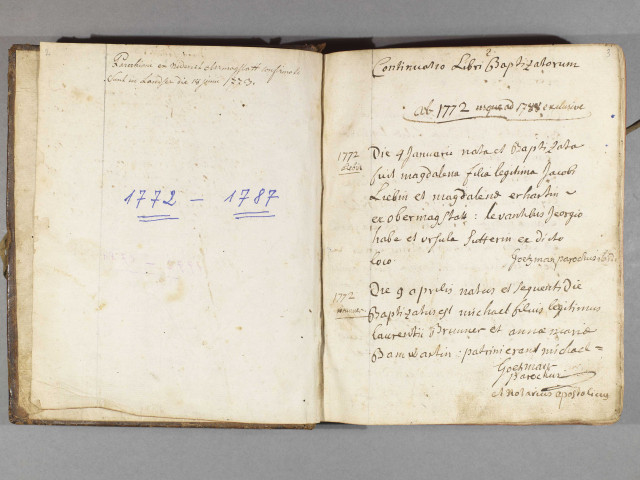 Parochiani ex
sunt in Landser die 19 Junii 1773.
1772 — 1787
2
3
Continuatio Libri Baptizatorum
ab 1772 usque ad 1788 exclusive
1772
Die 9 Januarii nata et Baptizata
fuit magdalena filia legitima Jacobi
Liebin et magdalenæ erhartin
ex obermagstatt : levantibus Georgio
habe et ursula Sutterin ex dicto
loco
Goetzman parochus
1772
Die 9 aprilis natus et sequenti Die
Baptizatus est michael filius legitimus
laurentii Brunner et annæ mariæ
Bamwartin : patrini erant michael =
Goetzman
Parochus
et Notarius apostolicus